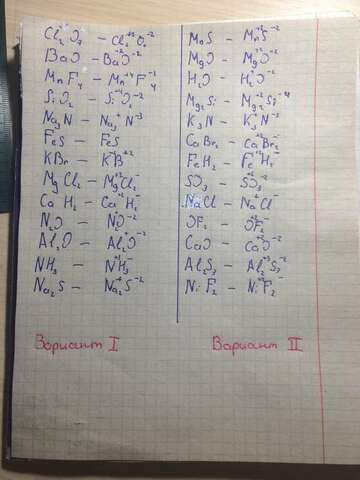 Cl₂O₇ – Cl₂⁺²O₇⁻²
BaO – BaO⁻²
MnF₄ – Mn⁺⁴F₄⁻¹
SiO₂ – Si⁺⁴O₂⁻²
Na₃N – Na₃⁺N⁻³
FeS – FeS
KBr – K⁺B⁺²
MgCl₂ – Mg⁺²Cl₂⁻
CaH₂ – Ca⁺²H₂⁻
N₂O – N₂O⁻²
Al₂O – Al₂⁺O⁻²
NH₃ – NH₃⁻
Na₂S – Na₂⁺S⁻²
Вариант I
MnS – Mn⁺²S⁻²
MgO – Mg⁺²O⁻²
H₂O – H₂⁺O⁻²
Mg₂Si – Mg₂⁺²Si⁻⁴
K₃N – K₃⁺N⁻³
CaBr₂ – Ca⁺²Br₂⁻
FeH₂ – Fe⁺²H₂⁻
SO₃ – SO₃⁻²
NaCl – Na⁺Cl⁻
OF₂ – O⁺²F₂⁻
CaO – Ca⁺²O⁻²
Al₂S₃ – Al₂⁺³S₃⁻²
NiF₂ – Ni⁺²F₂⁻
Вариант II